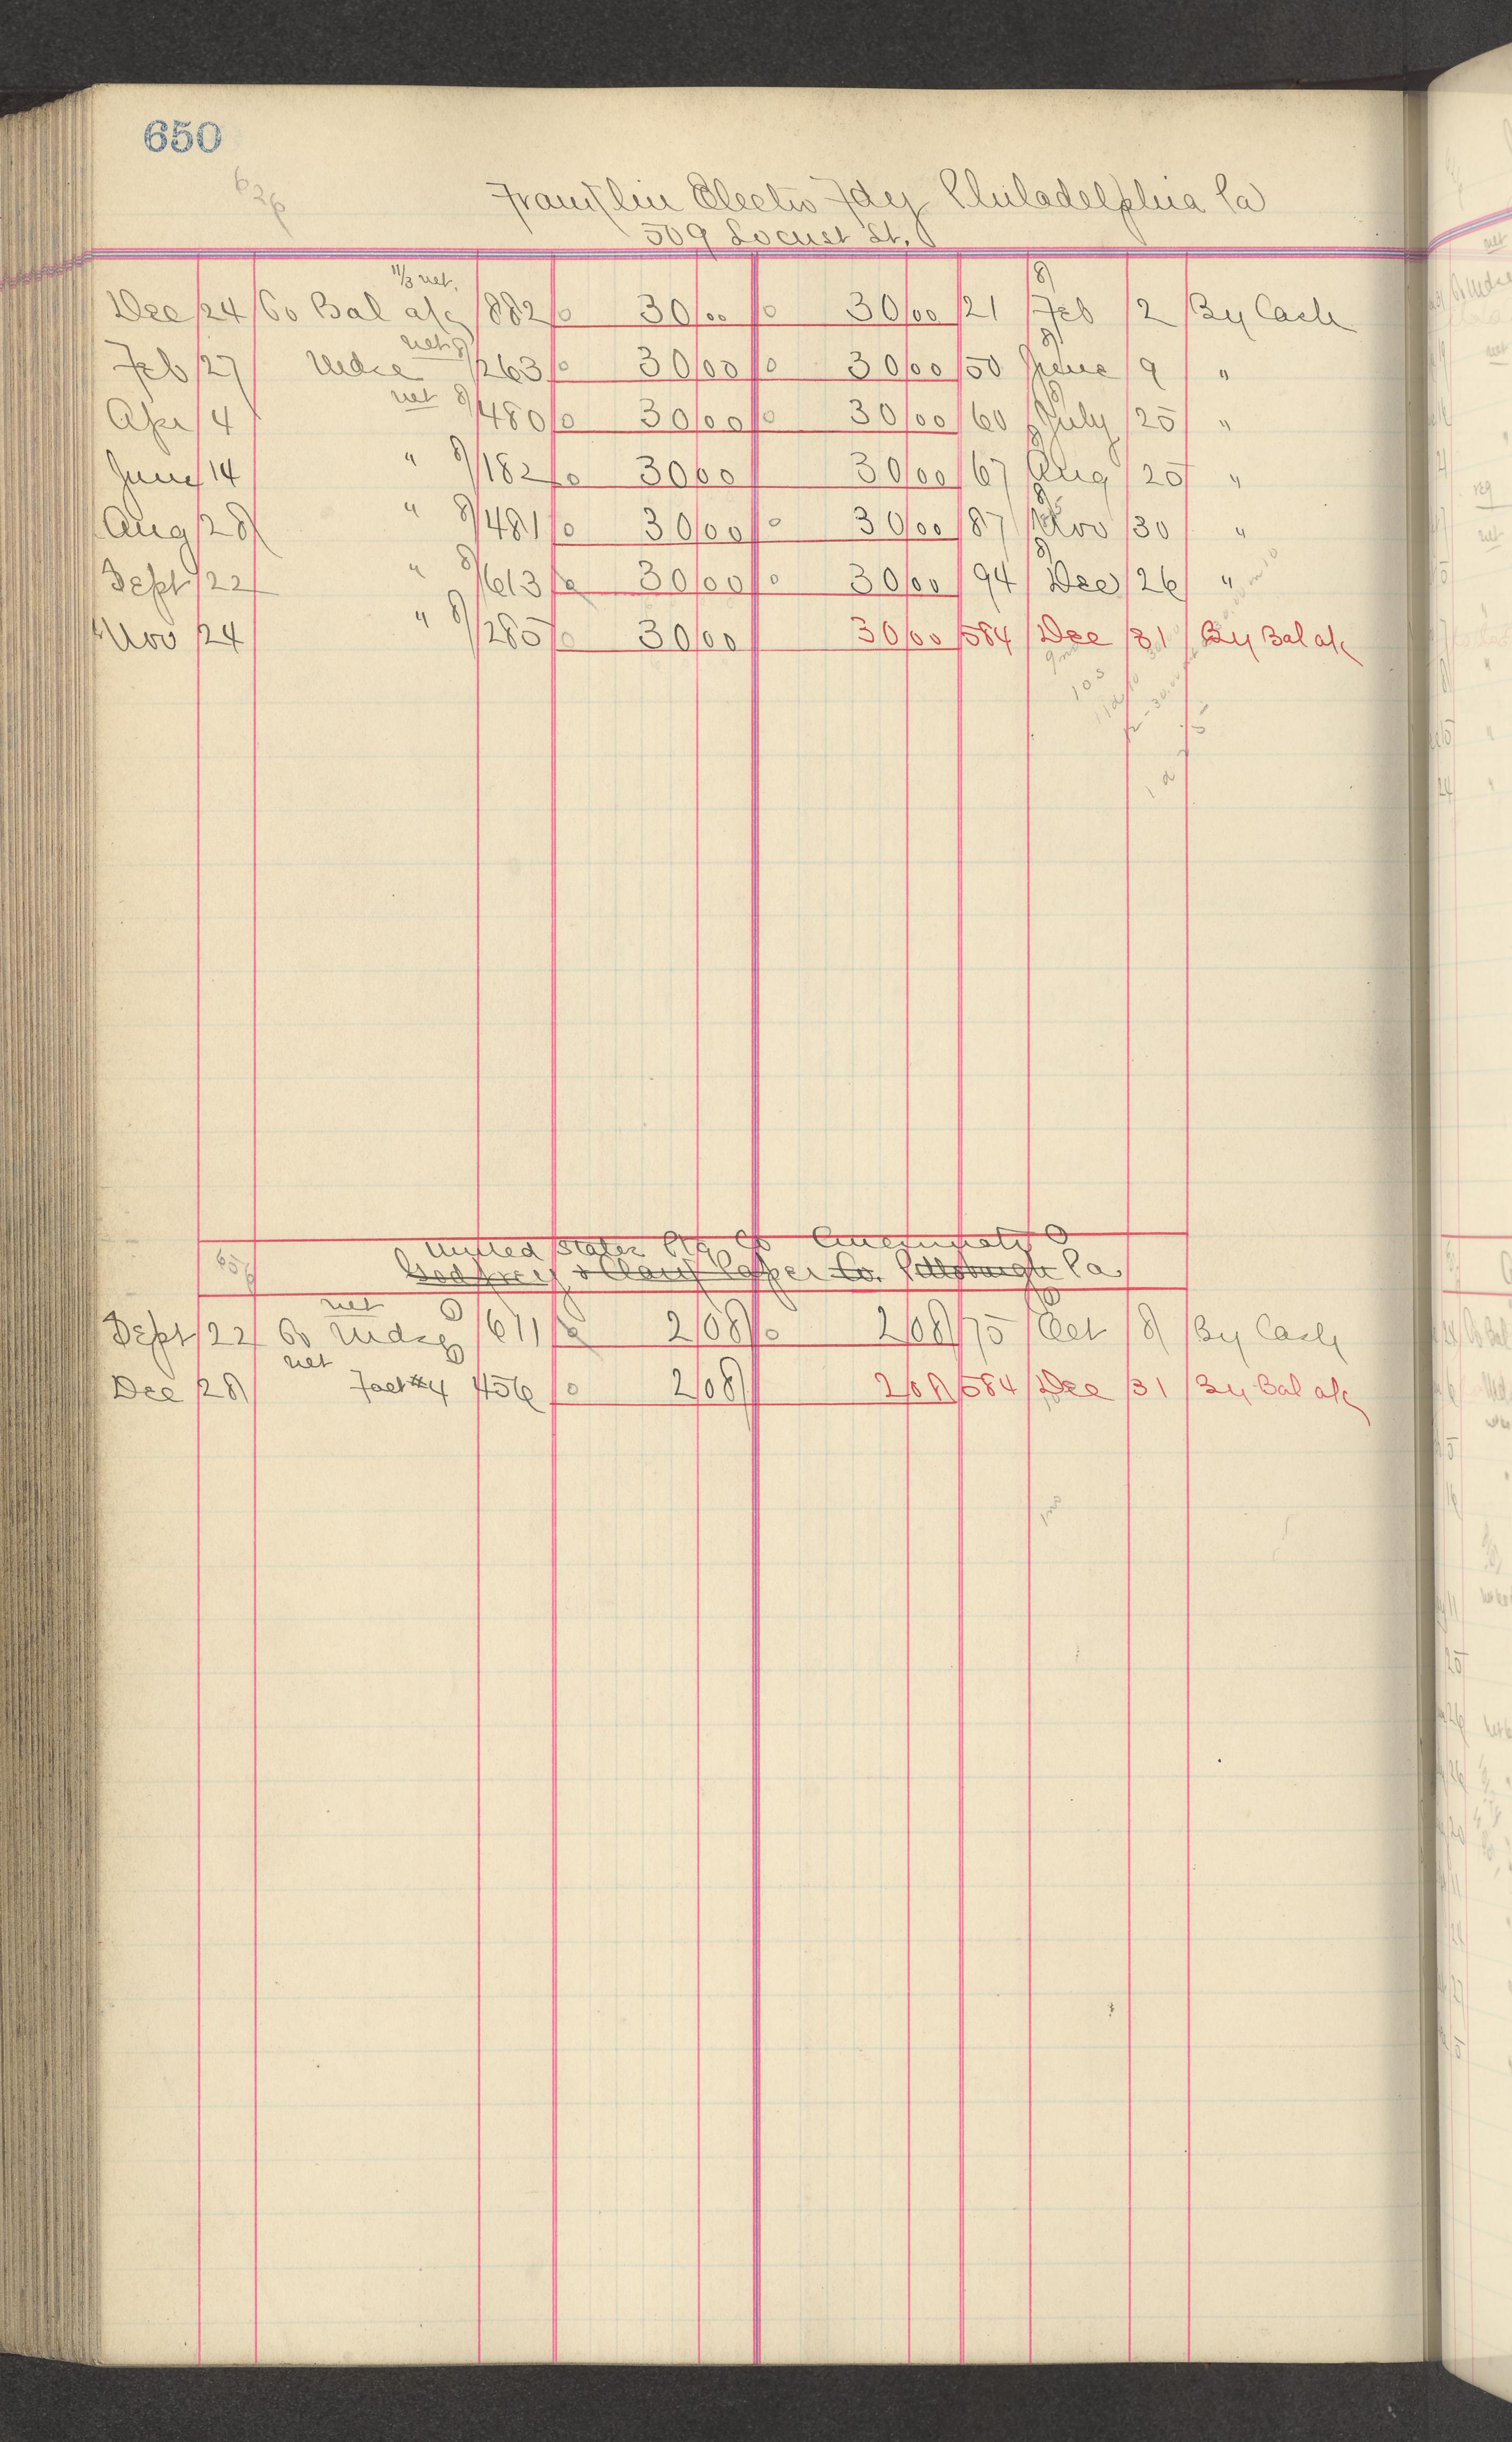 650
Franklin Electro Fdy Philadelphia Pa
509 Locust St.
11/3 net.
Dec 24 To Bal a/c 882 30 00 30 00 21 Feb 2 By Cash
net
Feb 27 Mdse 263 30 00 30 00 50 June 9 "
net
Apr 4 480 30 00 30 00 60 July 25 "
June 14 " 182 30 00 30 00 67 Aug 25 "
Aug 28 " 481 30 00 30 00 87 Nov 30 "
Sept 22 " 613 30 00 30 00 94 Dec 26 "
Nov 24 " 285 30 00 30 00 584 Dec 31 By Bal a/c
United States Ptg Co Cincinnati O
Godfrey & Clark Paper Co. Pittsburgh Pa
net
Sept 22 To Mdse 611 2 08 2 08 75 Oct 8 By Cash
net
Dec 28 Fact #4 456 2 08 2 08 584 Dec 31 By Bal a/c